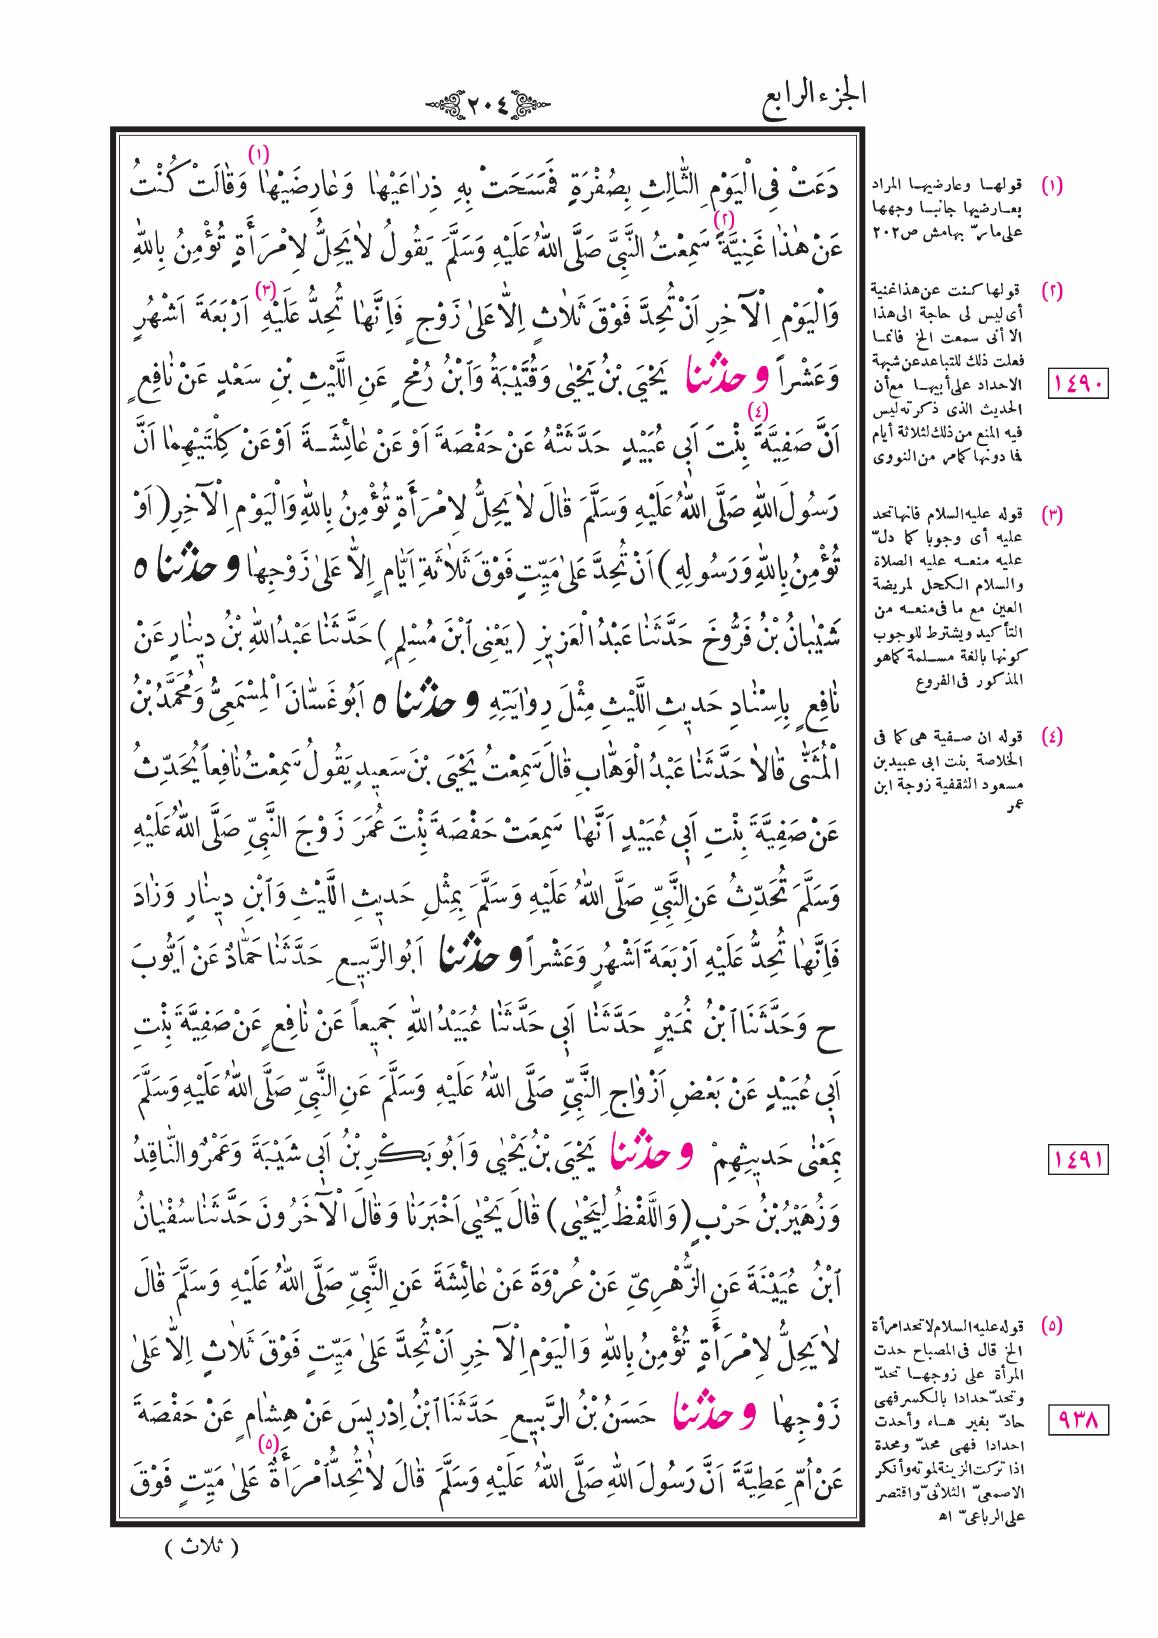 الجزء الرابع
٢٠٤
دَعَتْ فِى الْيَوْمِ الثَّالِثِ بِصُفْرَةٍ فَمَسَحَتْ بِهِ ذِرَاعَيْهَا وَعَارِضَيْهَا (١) وَقَالَتْ كُنْتُ
عَنْ هٰذَا غَنِيَّةً (٢) سَمِعْتُ النَّبِىَّ صَلَّى اللّٰهُ عَلَيْهِ وَسَلَّمَ يَقُولُ لَا يَحِلُّ لِامْرَأَةٍ تُؤْمِنُ بِاللّٰهِ
وَالْيَوْمِ الْآخِرِ اَنْ تُحِدَّ فَوْقَ ثَلَاثٍ اِلَّا عَلٰى زَوْجٍ فَاِنَّهَا تُحِدُّ عَلَيْهِ (٣) اَرْبَعَةَ اَشْهُرٍ
وَعَشْراً وحدثنا يَحْيَى بْنُ يَحْيٰى وَقُتَيْبَةُ وَابْنُ رُمْحٍ عَنِ اللَّيْثِ بْنِ سَعْدٍ عَنْ نَافِعٍ
اَنَّ صَفِيَّةَ (٤) بِنْتَ اَبِى عُبَيْدٍ حَدَّثَتْهُ عَنْ حَفْصَةَ اَوْ عَنْ عَائِشَةَ اَوْ عَنْ كِلْتَيْهِمَا اَنَّ
رَسُولَ اللّٰهِ صَلَّى اللّٰهُ عَلَيْهِ وَسَلَّمَ قَالَ لَا يَحِلُّ لِامْرَأَةٍ تُؤْمِنُ بِاللّٰهِ وَالْيَوْمِ الْآخِرِ (اَوْ
تُؤْمِنُ بِاللّٰهِ وَرَسُولِهِ) اَنْ تُحِدَّ عَلٰى مَيِّتٍ فَوْقَ ثَلَاثَةِ اَيَّامٍ اِلَّا عَلٰى زَوْجِهَا وحدثنا ه
شَيْبَانُ بْنُ فَرُّوخَ حَدَّثَنَا عَبْدُ الْعَزِيزِ (يَعْنِى ابْنَ مُسْلِمٍ) حَدَّثَنَا عَبْدُ اللّٰهِ بْنُ دِينَارٍ عَنْ
نَافِعٍ بِاِسْنَادِ حَدِيثِ اللَّيْثِ مِثْلَ رِوَايَتِهِ وحدثنا ه اَبُو غَسَّانَ الْمِسْمَعِىُّ وَمُحَمَّدُ بْنُ
الْمُثَنّٰى قَالَا حَدَّثَنَا عَبْدُ الْوَهَّابِ قَالَ سَمِعْتُ يَحْيَى بْنَ سَعِيدٍ يَقُولُ سَمِعْتُ نَافِعاً يُحَدِّثُ
عَنْ صَفِيَّةَ بِنْتِ اَبِى عُبَيْدٍ اَنَّهَا سَمِعَتْ حَفْصَةَ بِنْتَ عُمَرَ زَوْجَ النَّبِىِّ صَلَّى اللّٰهُ عَلَيْهِ
وَسَلَّمَ تُحَدِّثُ عَنِ النَّبِىِّ صَلَّى اللّٰهُ عَلَيْهِ وَسَلَّمَ بِمِثْلِ حَدِيثِ اللَّيْثِ وَابْنِ دِينَارٍ وَزَادَ
فَاِنَّهَا تُحِدُّ عَلَيْهِ اَرْبَعَةَ اَشْهُرٍ وَعَشْراً وحدثنا اَبُو الرَّبِيعِ حَدَّثَنَا حَمَّادٌ عَنْ اَيُّوبَ
ح وَحَدَّثَنَا ابْنُ نُمَيْرٍ حَدَّثَنَا اَبِى حَدَّثَنَا عُبَيْدُ اللّٰهِ جَمِيعاً عَنْ نَافِعٍ عَنْ صَفِيَّةَ بِنْتِ
اَبِى عُبَيْدٍ عَنْ بَعْضِ اَزْوَاجِ النَّبِىِّ صَلَّى اللّٰهُ عَلَيْهِ وَسَلَّمَ عَنِ النَّبِىِّ صَلَّى اللّٰهُ عَلَيْهِ وَسَلَّمَ
بِمَعْنٰى حَدِيثِهِمْ وحدثنا يَحْيَى بْنُ يَحْيٰى وَاَبُو بَكْرِ بْنُ اَبِى شَيْبَةَ وَعَمْرٌو النَّاقِدُ
وَزُهَيْرُ بْنُ حَرْبٍ (وَاللَّفْظُ لِيَحْيٰى) قَالَ يَحْيٰى اَخْبَرَنَا وَقَالَ الْآخَرُونَ حَدَّثَنَا سُفْيَانُ
ابْنُ عُيَيْنَةَ عَنِ الزُّهْرِىِّ عَنْ عُرْوَةَ عَنْ عَائِشَةَ عَنِ النَّبِىِّ صَلَّى اللّٰهُ عَلَيْهِ وَسَلَّمَ قَالَ
لَا يَحِلُّ لِامْرَأَةٍ تُؤْمِنُ بِاللّٰهِ وَالْيَوْمِ الْآخِرِ اَنْ تُحِدَّ عَلٰى مَيِّتٍ فَوْقَ ثَلَاثٍ اِلَّا عَلٰى
زَوْجِهَا وحدثنا حَسَنُ بْنُ الرَّبِيعِ حَدَّثَنَا ابْنُ اِدْرِيسَ عَنْ هِشَامٍ عَنْ حَفْصَةَ
عَنْ اُمِّ عَطِيَّةَ اَنَّ رَسُولَ اللّٰهِ صَلَّى اللّٰهُ عَلَيْهِ وَسَلَّمَ قَالَ لَا تُحِدُّ امْرَأَةٌ (٥) عَلٰى مَيِّتٍ فَوْقَ
( ثلاث )
(١) قولها وعارضيها المراد
بعارضيها جانبا وجهها
على مامرّ بهامش ص ٢٠٢
(٢) قولها كنت عن هذا غنية
أى ليس لى حاجة الى هذا
الا أنى سمعت الخ فانما
فعلت ذلك للتباعد عن شبهة
الاحداد على أبيها مع أن
الحديث الذى ذكرته ليس
فيه المنع من ذلك لثلاثة أيام
فما دونها كما مر من النووى
(٣) قوله عليه السلام فانها تحد
عليه أى وجوبا كما دلّ
عليه منعه عليه الصلاة
والسلام الكحل لمريضة
العين مع ما فى منعه من
التأكيد ويشترط للوجوب
كونها بالغة مسلمة كما هو
المذكور فى الفروع
(٤) قوله ان صفية هى كما فى
الخلاصة بنت ابى عبيد بن
مسعود الثقفية زوجة ابن
عمر
(٥) قوله عليه السلام لا تحد امرأة
الخ قال فى المصباح حدت
المرأة على زوجها تحدّ
وتحدّ حدادا بالكسر فهى
حادّ بغير هاء وأحدت
احدادا فهى محدّ ومحدة
اذا تركت الزينة لموته وأنكر
الاصمعىّ الثلاثىّ واقتصر
على الرباعىّ اه
١٤٩٠
١٤٩١
٩٣٨